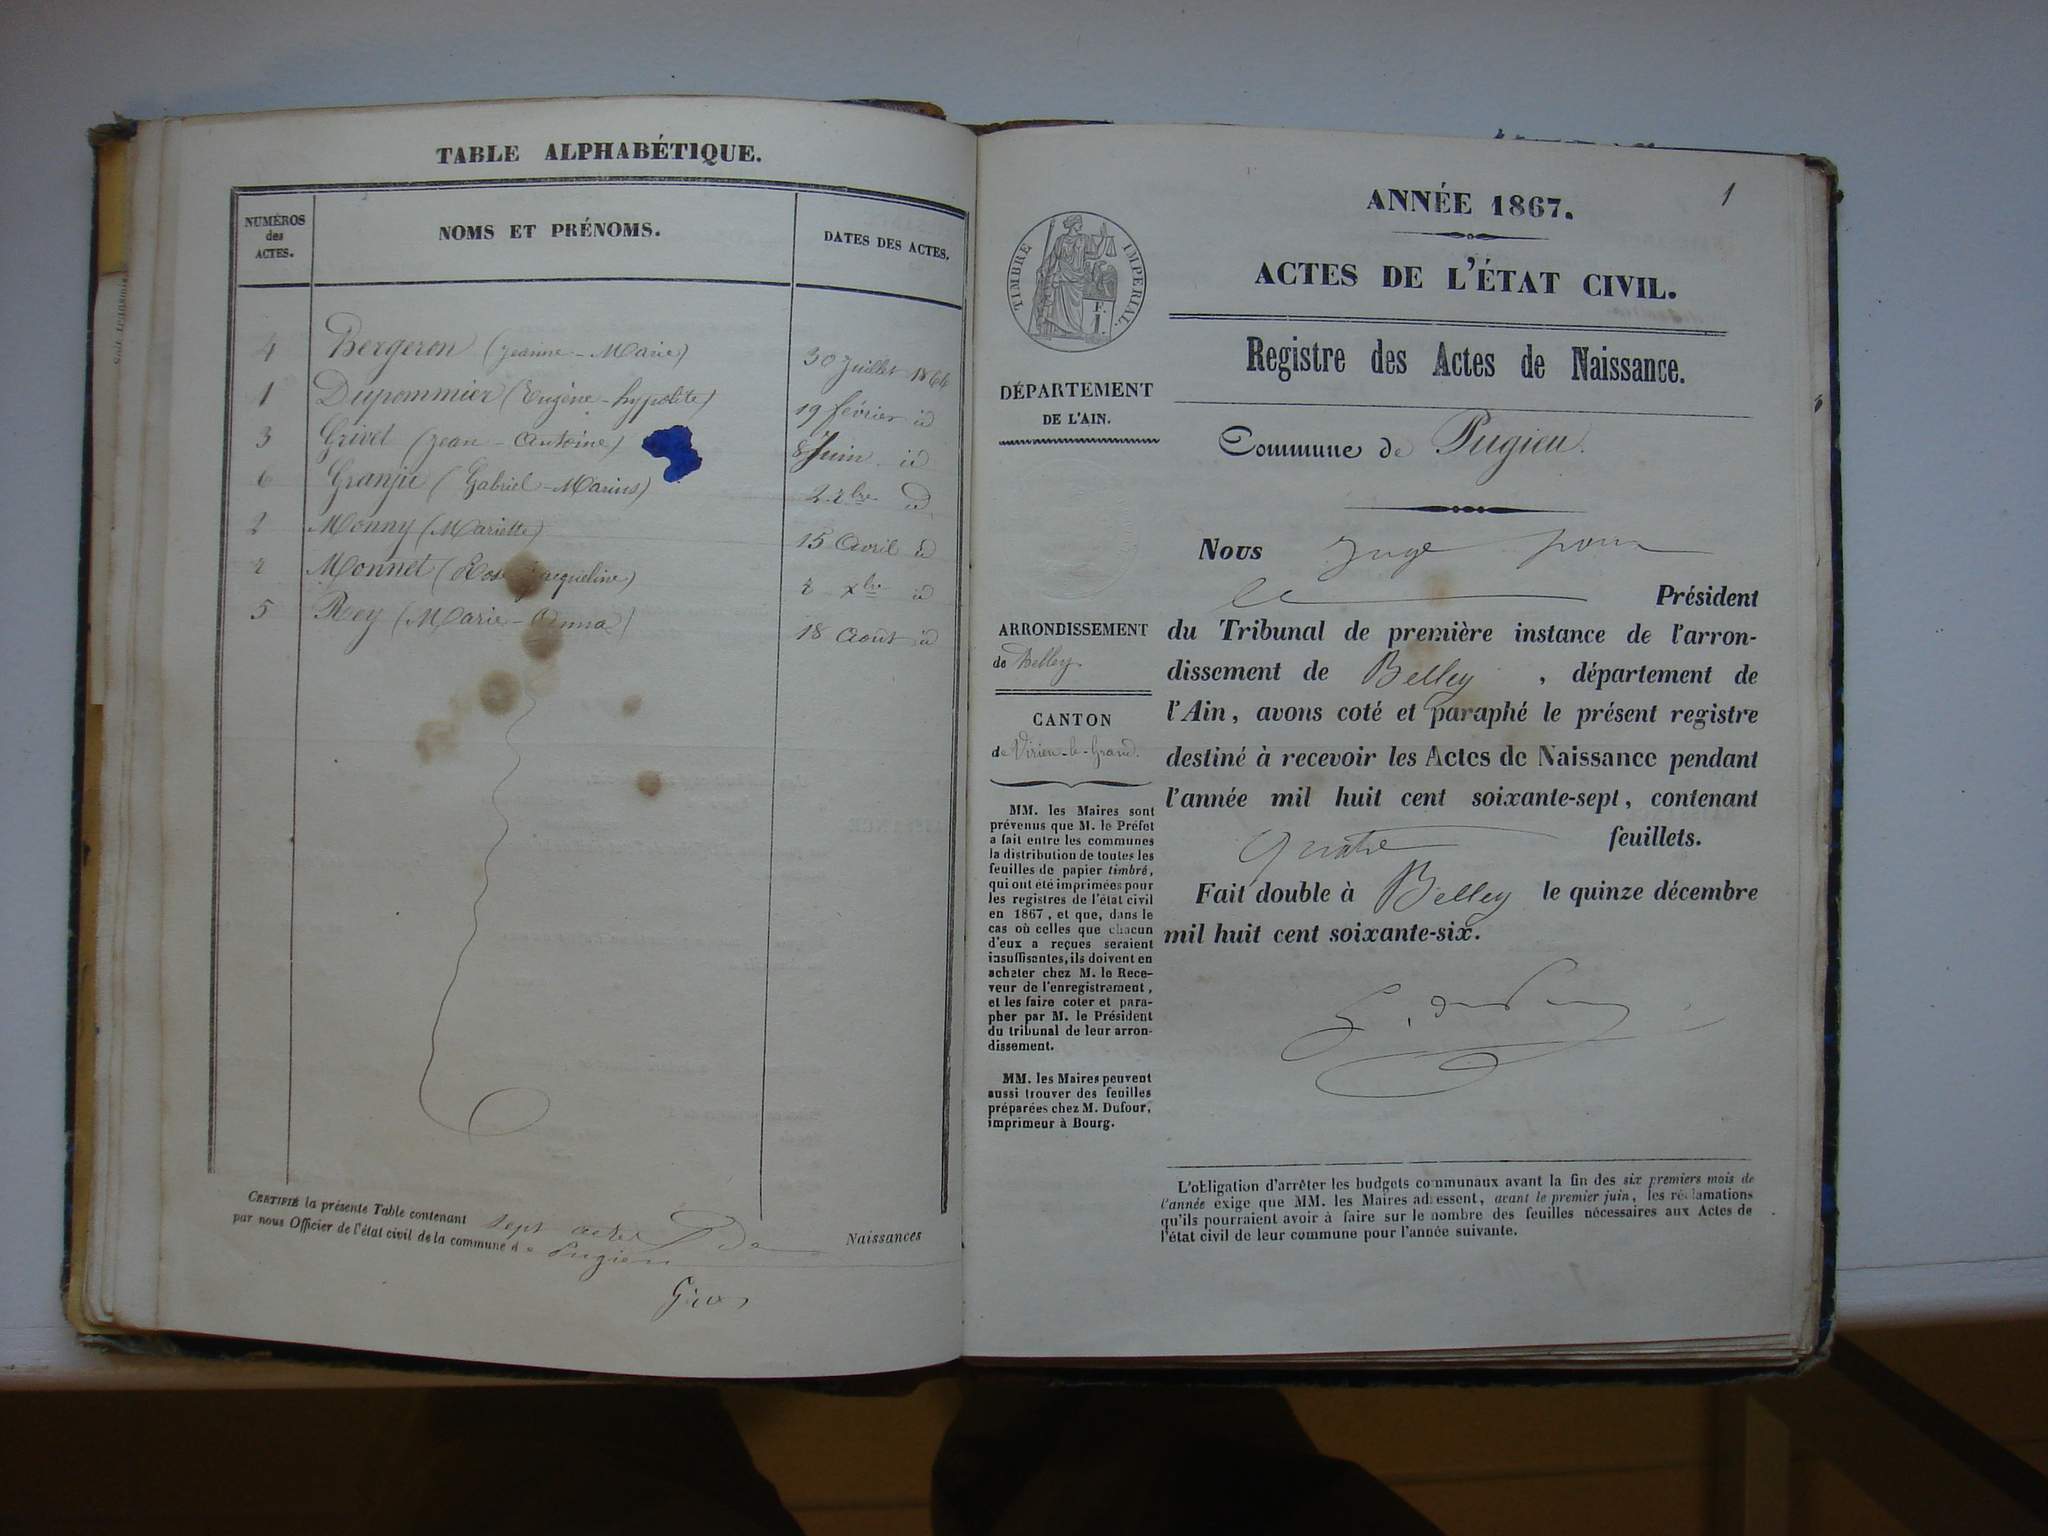 TABLE ALPHABÉTIQUE.
NUMÉROS
des
ACTES.
NOMS ET PRÉNOMS.
DATES DES ACTES.
4 Bergeron (Jeanne-Marie) 30 Juillet 1866
1 Dupommier (Eugène-hypolite) 19 février id
3 Grivel (Jean-Antoine) 8 Juin id
6 Granju (Gabriel-Marius) id
2 Monny (Mariette) 15 Avril id
Monnet (Rose Jacqueline) xbre id
5 Rey (Marie-Anna) 18 Août id
CERTIFIÉ la présente Table contenant sept actes de Naissances
par nous Officier de l'état civil de la commune de Pugieu
1
ANNÉE 1867.
ACTES DE L'ÉTAT CIVIL.
Registre des Actes de Naissance.
Commune de Pugieu.
TIMBRE IMPÉRIAL.
F.
1.
DÉPARTEMENT
DE L'AIN.
ARRONDISSEMENT
de Belley
CANTON
de Virieu-le-Grand.
MM. les Maires sont
prévenus que M. le Préfet
a fait entre les communes
la distribution de toutes les
feuilles de papier timbré,
qui ont été imprimées pour
les registres de l'état civil
en 1867, et que, dans le
cas où celles que chacun
d'eux a reçues seraient
insuffisantes, ils doivent en
acheter chez M. le Rece-
veur de l'enregistrement,
et les faire coter et para-
pher par M. le Président
du tribunal de leur arron-
dissement.
MM. les Maires peuvent
aussi trouver des feuilles
préparées chez M. Dufour,
imprimeur à Bourg.
Nous Juge pour
le Président
du Tribunal de première instance de l'arron-
dissement de Belley, département de
l'Ain, avons coté et paraphé le présent registre
destiné à recevoir les Actes de Naissance pendant
l'année mil huit cent soixante-sept, contenant
quatre feuillets.
Fait double à Belley le quinze décembre
mil huit cent soixante-six.
L'obligation d'arrêter les budgets communaux avant la fin des six premiers mois de
l'année exige que MM. les Maires adressent, avant le premier juin, les réclamations
qu'ils pourraient avoir à faire sur le nombre des feuilles nécessaires aux Actes de
l'état civil de leur commune pour l'année suivante.